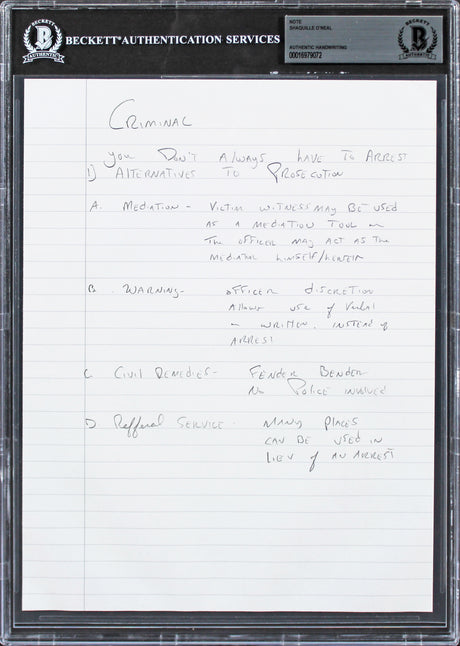 BECKETT
AUTHENTIC
BECKETT AUTHENTICATION SERVICES
NOTE
SHAQUILLE O'NEAL
AUTHENTIC HANDWRITING
00016979072
BECKETT
AUTHENTIC
CRIMINAL
you DON'T Always have To ARREST
1) ALTERNATIVES TO PROSECUTION
A. MEDIATION - VICTIM WITNESS MAY BE USED
AS A MEDIATION TOOL or
THE OFFICER MAY ACT AS THE
MEDIATOR HIMSELF/HERSELF
B. WARNING- OFFICER DISCRETION
Allows use of Verbal
or WRITTEN. INSTEAD of
ARREST
C. CIVIL REMEDIES- FENDER BENDER
No Police involved
D Refferal SERVICE. MANY PLACES
CAN BE USED IN
LIEU of AN ARREST